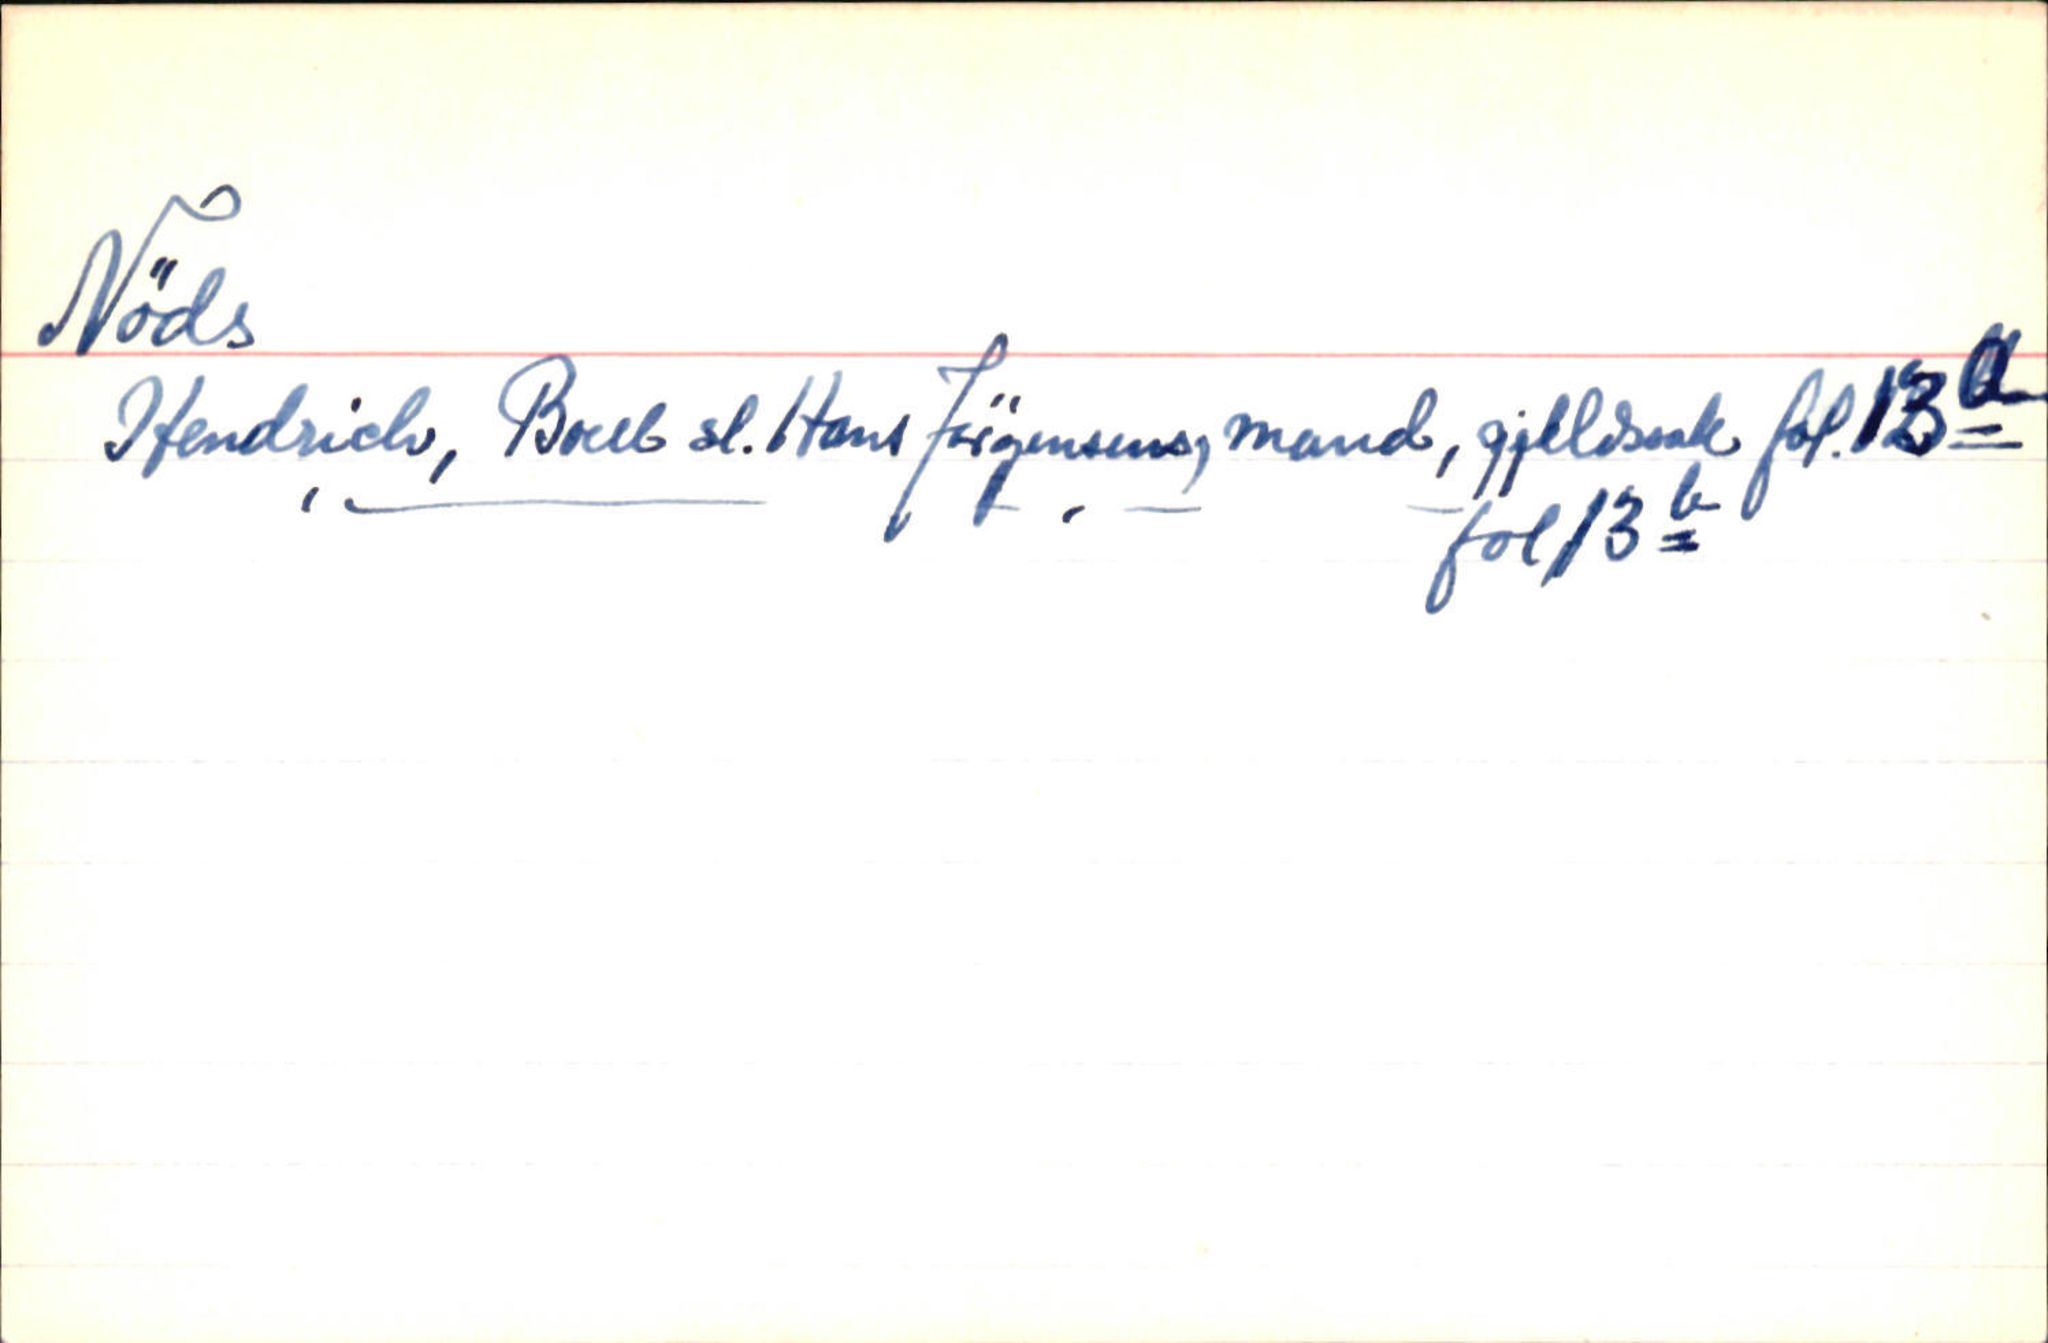 Nöds
Hendrich, Boell sl. Hans Jörgensens, mand, gjeldssak fol. 13 a
" — " — " — fol 13 b